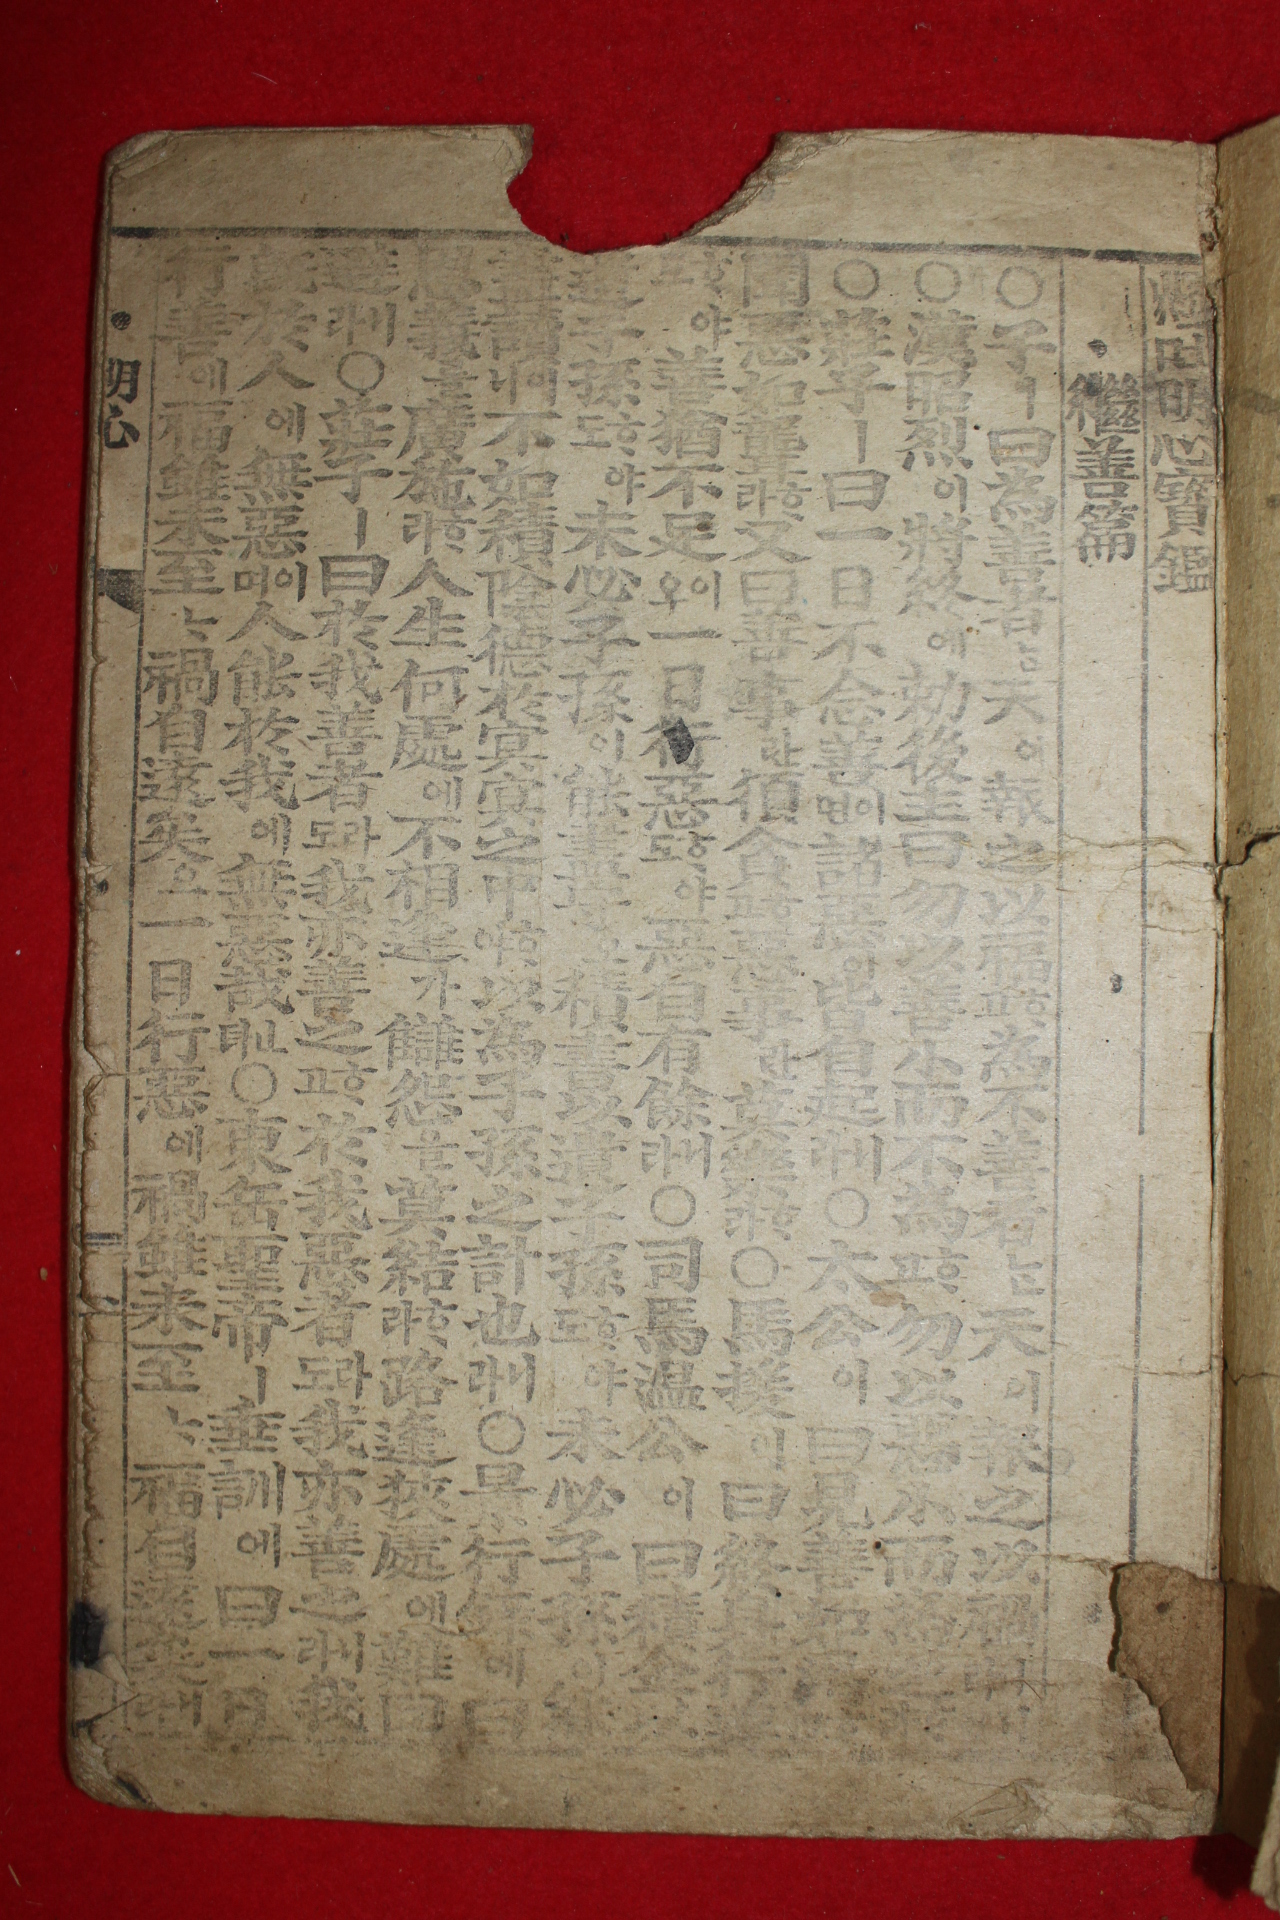 懸吐明心寶鑑
繼善篇
○子ㅣ曰爲善者는天이報之以福ᄒᆞ고爲不善者는天이報之以禍니라
○漢昭烈이將終에勑後主曰勿以善小而不爲ᄒᆞ고勿以惡小而爲之ᄒᆞ라
○莊子ㅣ曰一日不念善이면諸惡이皆自起니라○太公이曰見善如渴
聞惡如聾ᄒᆞ라又曰善事란須貪ᄒᆞ고惡事란莫樂ᄒᆞ라○馬援이曰終身行善
ᄒᆞ야善猶不足이오一日行惡ᄒᆞ야도惡自有餘니라○司馬温公이曰積金以
遺子孫ᄒᆞ야도未必子孫이能盡守오積書以遺子孫ᄒᆞ야도未必子孫이能
盡讀이니不如積陰德於冥冥之中ᄒᆞ야以爲子孫之計也니라○景行錄에曰
恩義를廣施ᄒᆞ라人生何處에不相逢가讎怨을莫結ᄒᆞ라路逢狹處에難回
避니라○莊子ㅣ曰於我善者도라我亦善之ᄒᆞ고於我惡者도라我亦善之니라我
旣於人에無惡이며人能於我에無惡哉ᄂᆞᆫ뎌○東岳聖帝ㅣ垂訓에曰一日
行善에福雖未至〻禍自遠矣오一日行惡에禍雖未至〻福自遠矣니라
明心